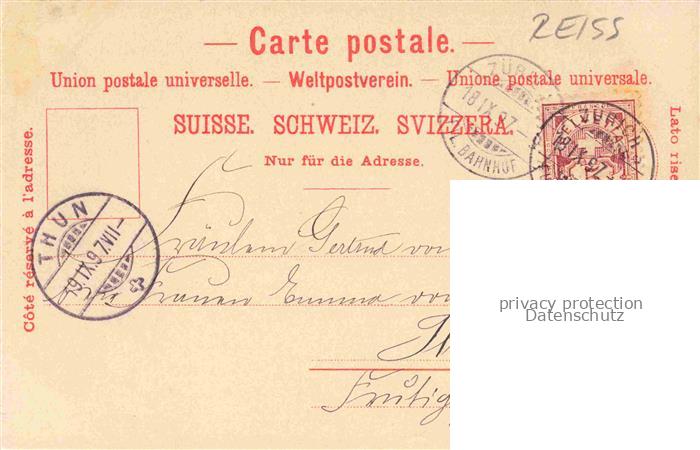 REISS
— Carte postale. —
Union postale universelle. — Weltpostverein. — Unione postale universale.
SUISSE. SCHWEIZ. SVIZZERA.
Nur für die Adresse.
Côté réservé à l'adresse.
Lato rise
ZÜR
18 IX 97
BAHNHOF
ZÜRICH
18 IX 97
THUN
19 IX 97 VII–
Fräulein Gertrud von
Frauen Emma von
Frutig
privacy protection
Datenschutz